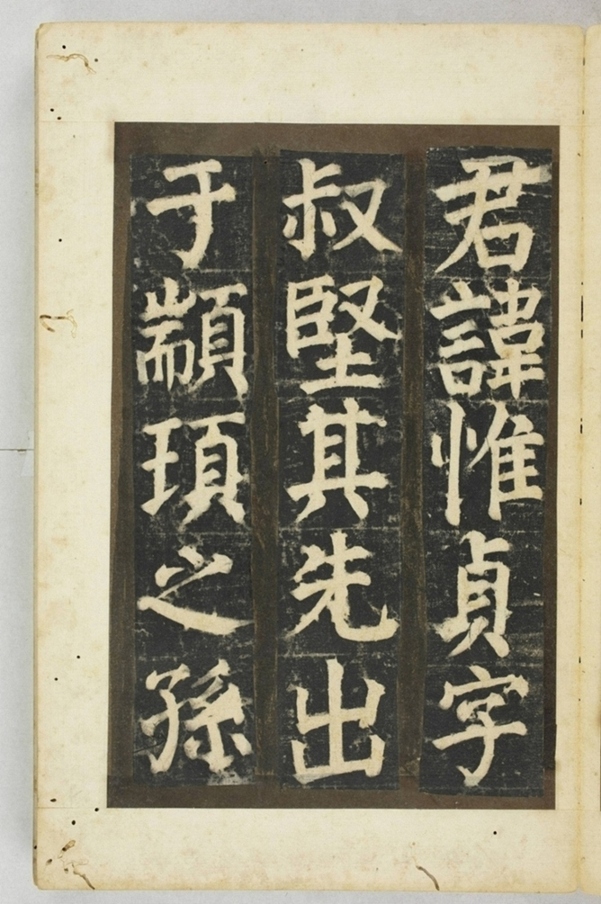 君諱惟貞字
叔堅其先出
于顓頊之孫